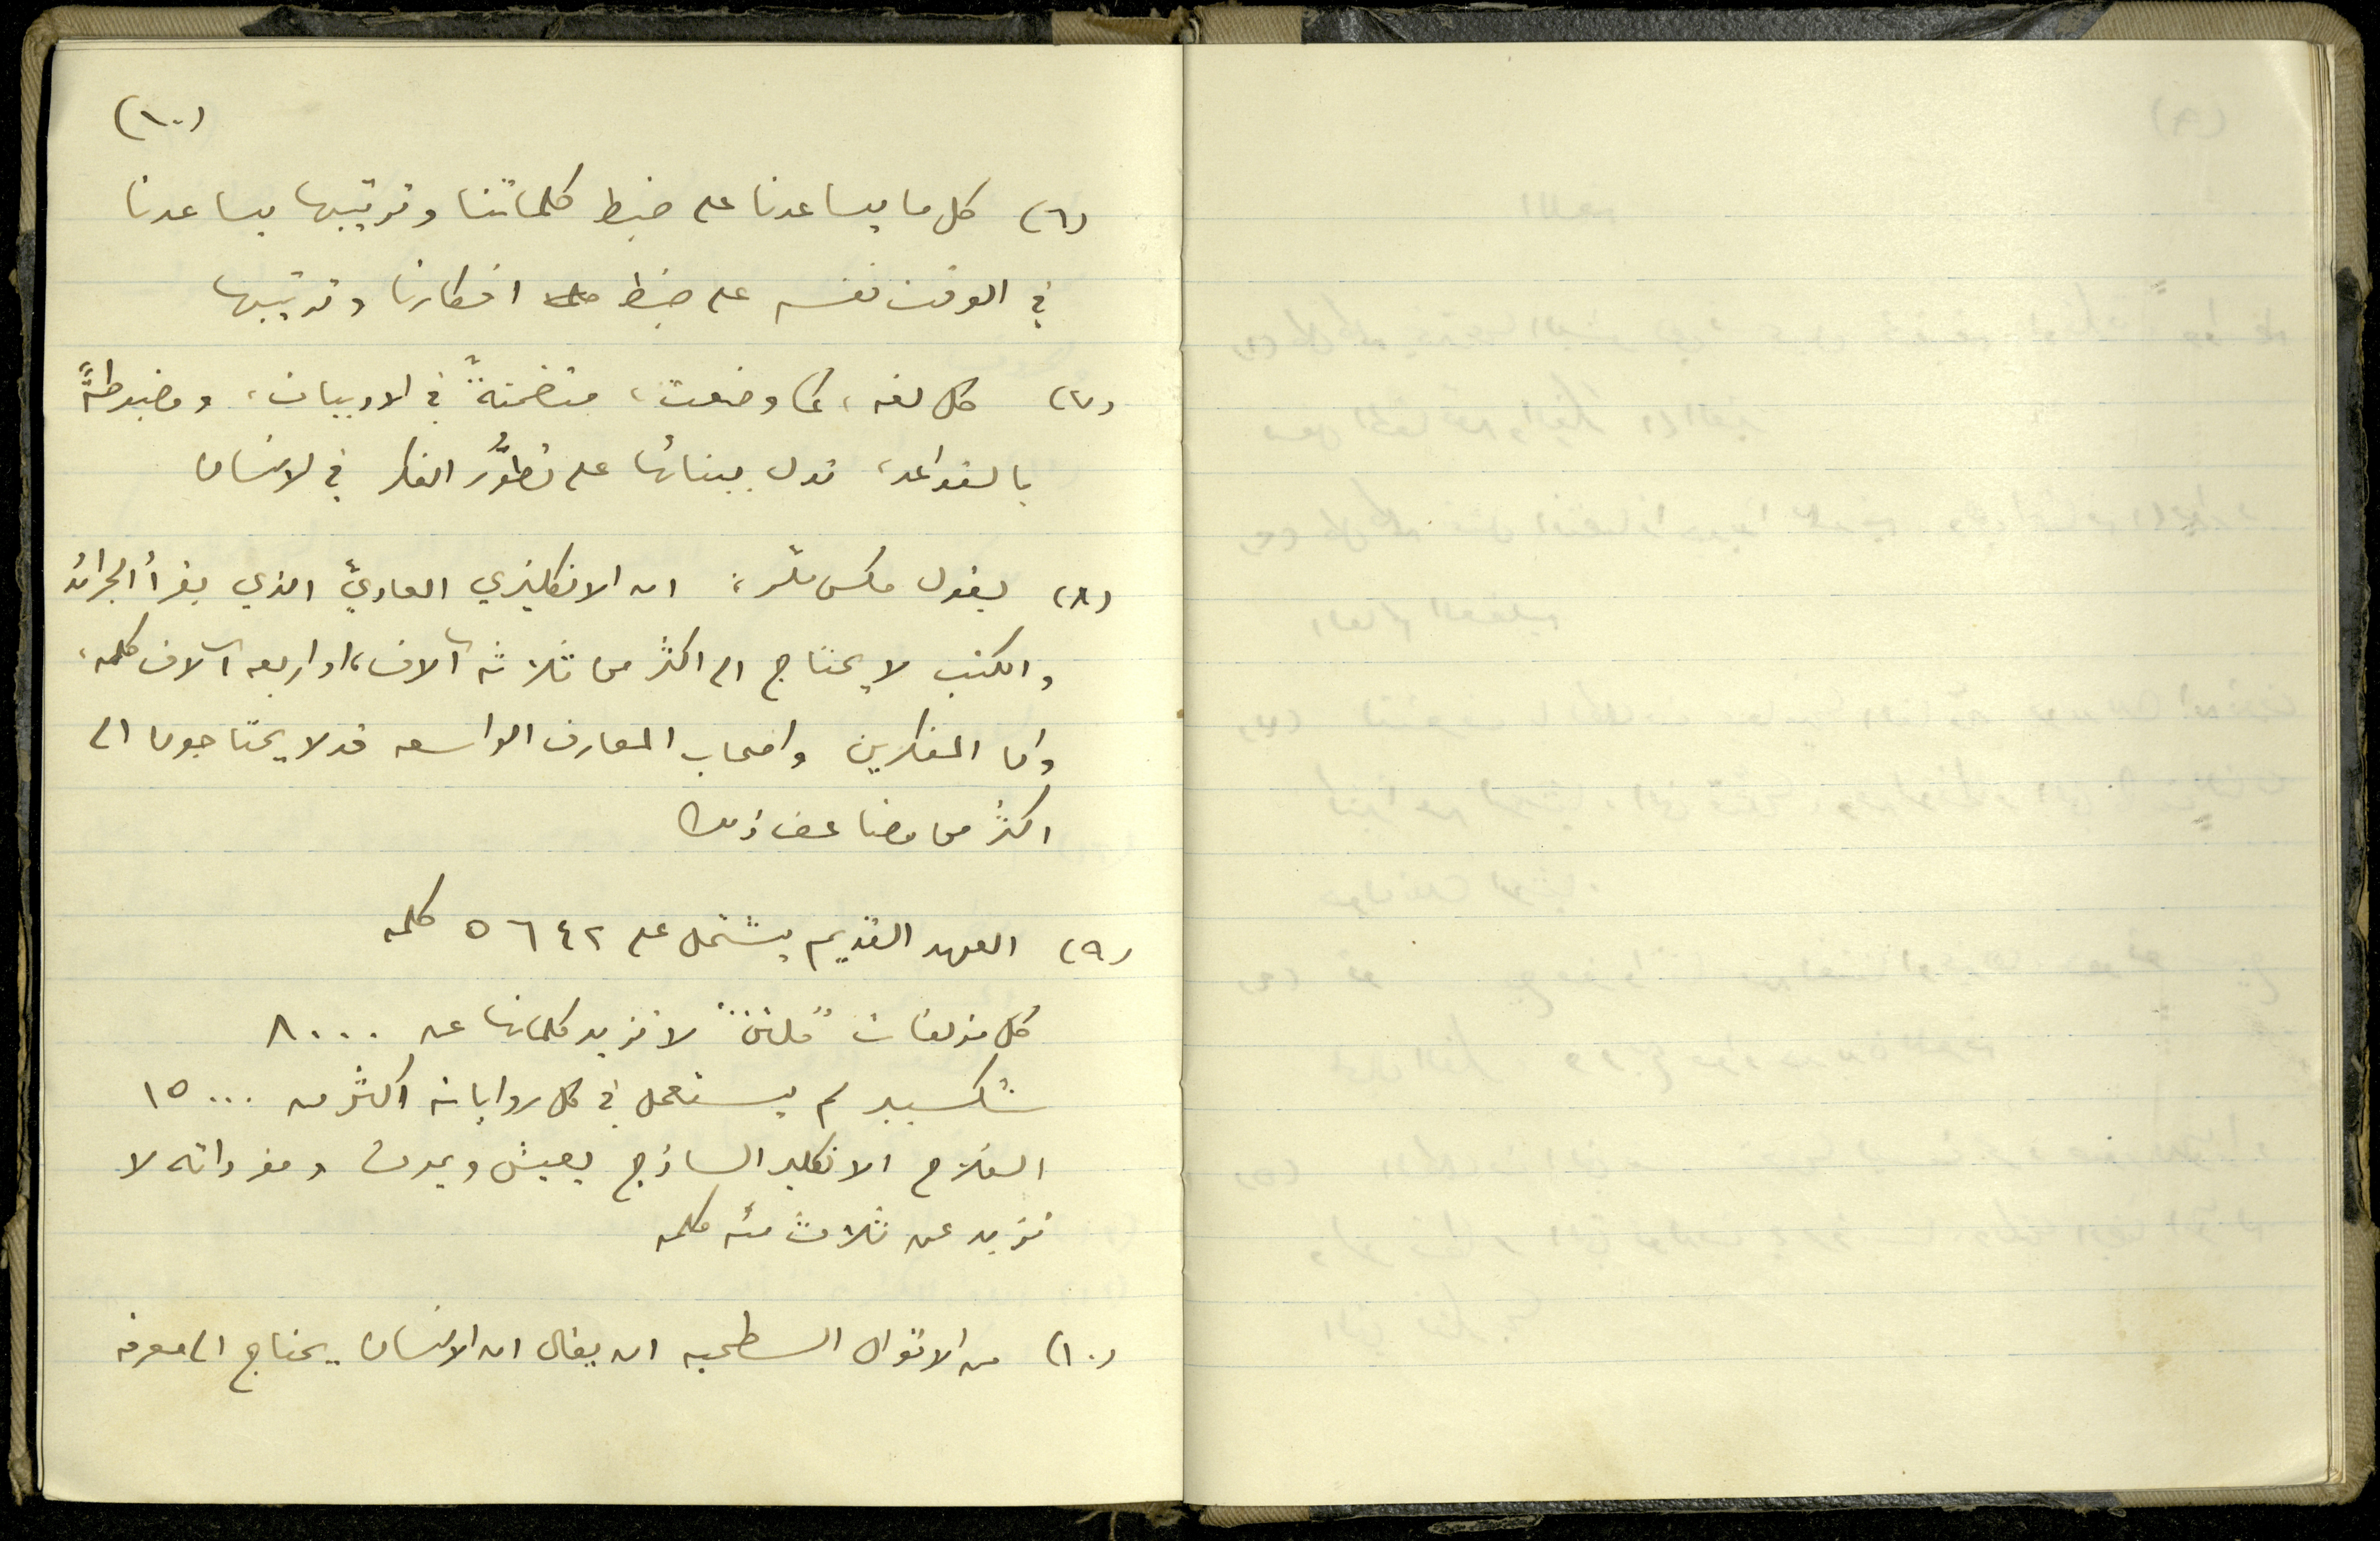 (١٠)
(٦) كل ما يساعدنا على ضبط كلماتنا وترتيبها يساعدنا
في الوقت نفسه على ضبط افكارنا وترتيبها
(٧) كل لغه، كما وضعت، متضمنةً في الادبيات، ومضبوطةً
بالقواعد، تدل ببنائها على تطوُّر الفكر في الانسان
(٨) يقول مكس ملّر: ان الانكليزي العاديّ الذي يقرأ الجرائد
والكتب لا يحتاج الى اكثر من ثلاثه آلاف، او اربعه آلاف كلمه،
واما المفكرين واصحاب المعارف الواسعه قد لا يحتاجون الى
اكثر من مضاعف ذلك
(٩) العهد القديم يشتمل على ٥٦٤٢ كلمه
كل مؤلفات "ملتن" لا تزيد كلماتها عن ٨٠٠٠
شكسبير لم يستعمل في كل رواياته اكثر من ١٥٠٠٠
الفلاح الانكليز الساذج يعيش ويموت ومفرداته لا
تزيد عن ثلاث مئه كلمه
(١٠) من الاقوال السطحيه ان يقال ان الانسان يحتاج الى معرفه